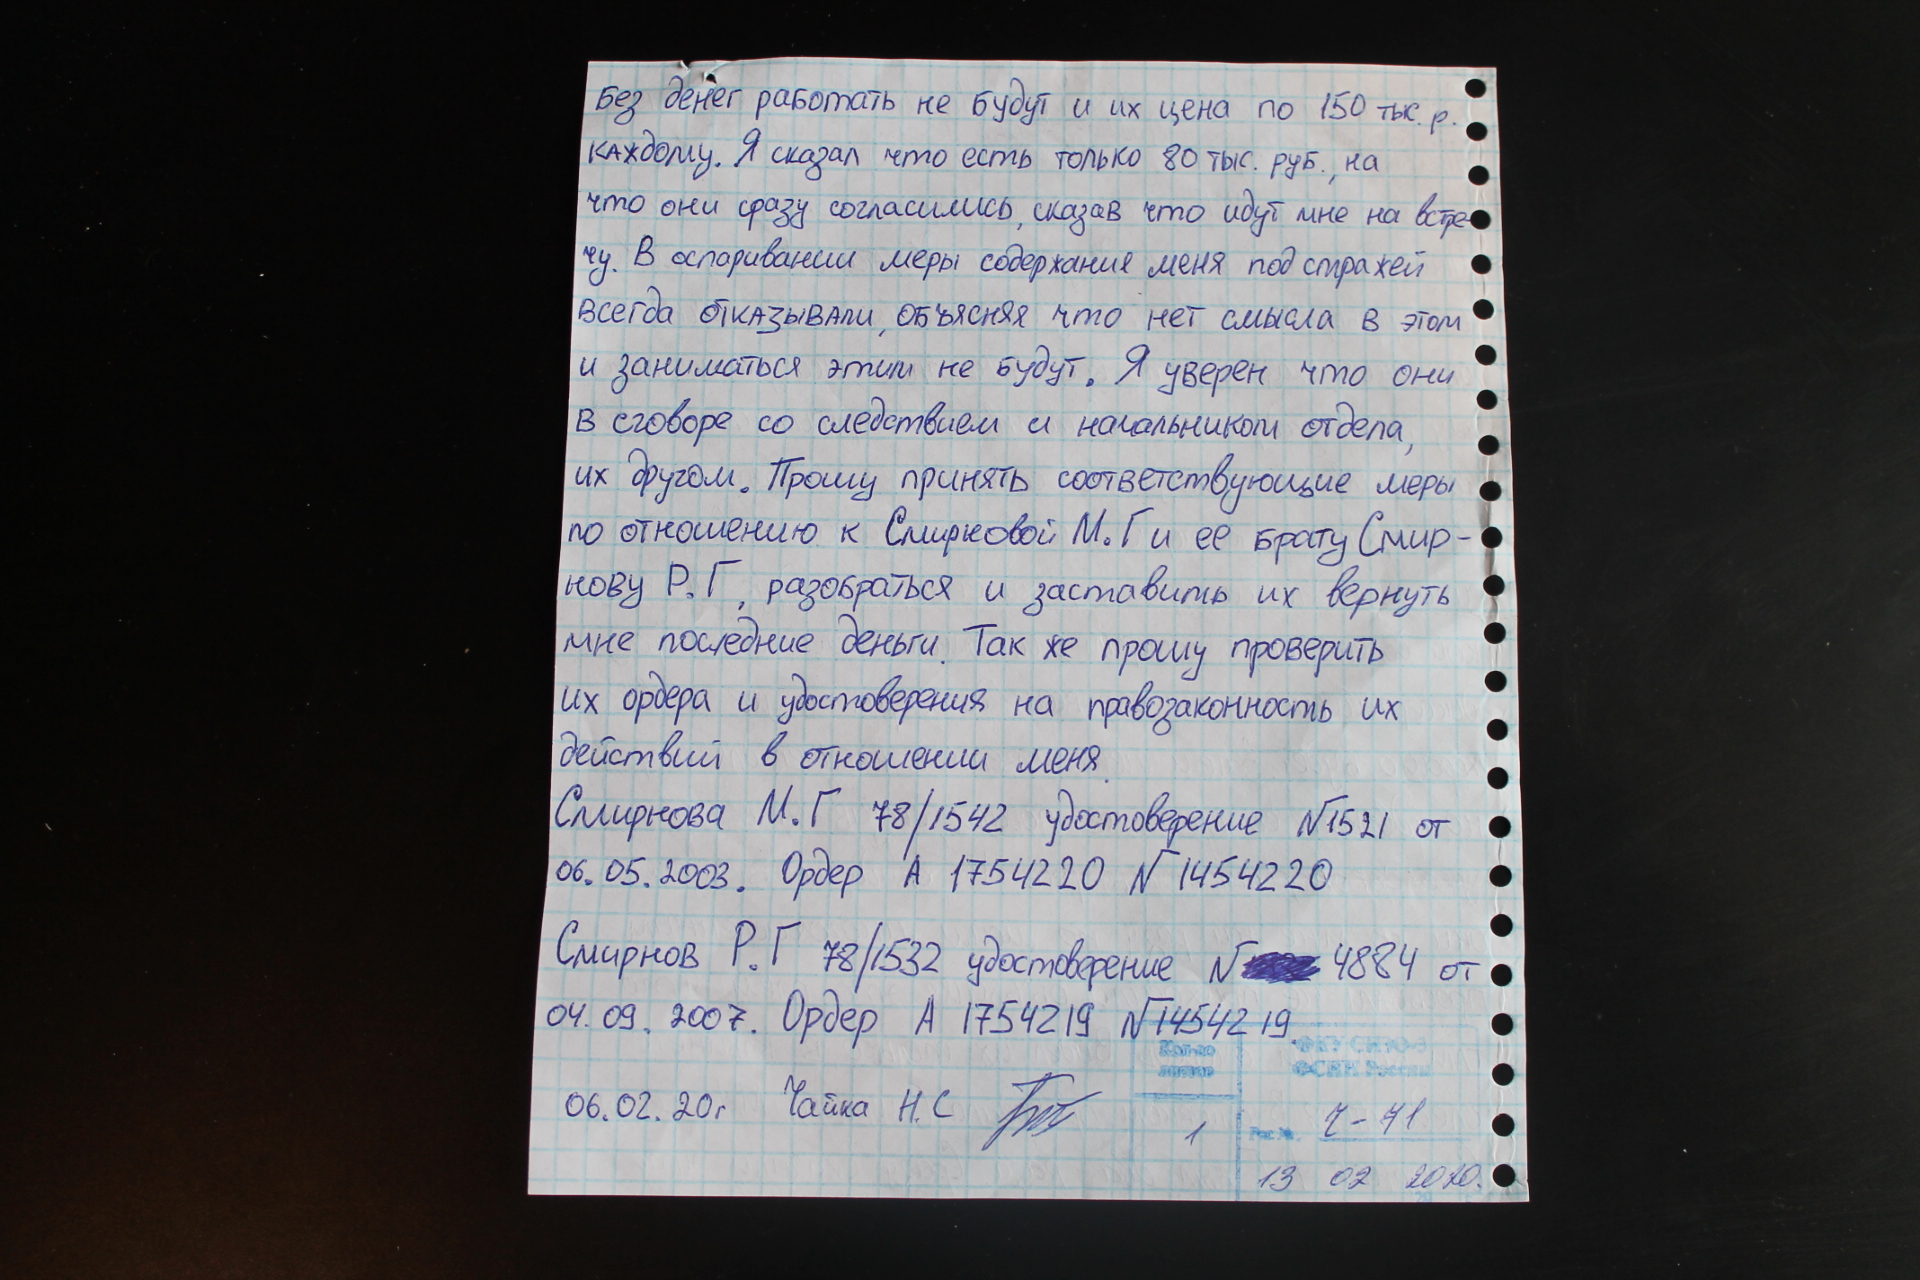 Без денег работать не будут и их цена по 150 тыс. р.
каждому. Я сказал что есть только 80 тыс. руб., на
что они сразу согласились, сказав что идут мне на встре-
чу. В оспаривании меры содержания меня под стражей
всегда отказывали, объясняя что нет смысла в этом
и заниматься этим не будут. Я уверен что они
в сговоре со следствием и начальником отдела,
их другом. Прошу принять соответствующие меры
по отношению к Смирновой М.Г и ее брату Смир-
нову Р.Г, разобраться и заставить их вернуть
мне последние деньги. Так же прошу проверить
их ордера и удостоверения на правозаконность их
действий в отношении меня.
Смирнова М.Г 78/1542 удостоверение №1521 от
06.05.2003. Ордер А 1754220 №1454220
Смирнов Р.Г 78/1532 удостоверение № 4884 от
04.09.2007. Ордер А 1754219 №1454219
Кол-во
листов
1
ФКУ СИЗО-3
ФСИН России
Рег.№ Ч-71
13 02 2020.
06.02.20г Чайка Н.С